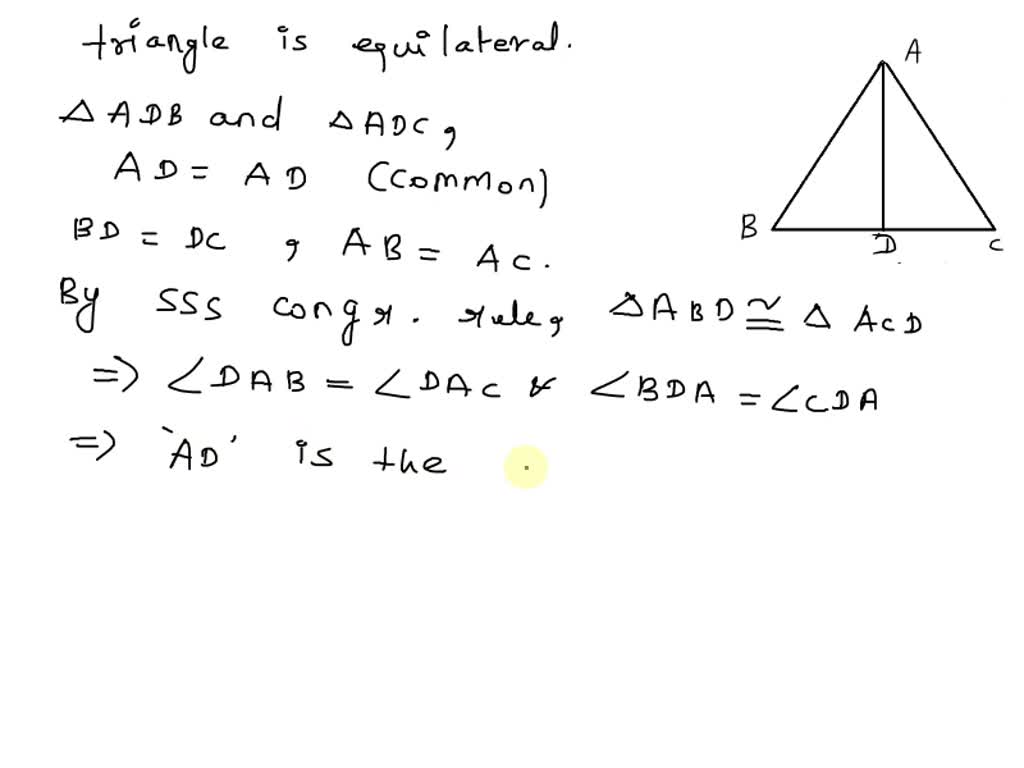 triangle is equilateral.
△ ADB and △ADC,
AD = AD (common)
BD = DC , AB = AC.
By SSS congr. rule, △ABD ≅ △ ACD
=> ∠DAB = ∠DAC & ∠BDA = ∠CDA
=> 'AD' is the
A
B
D
C